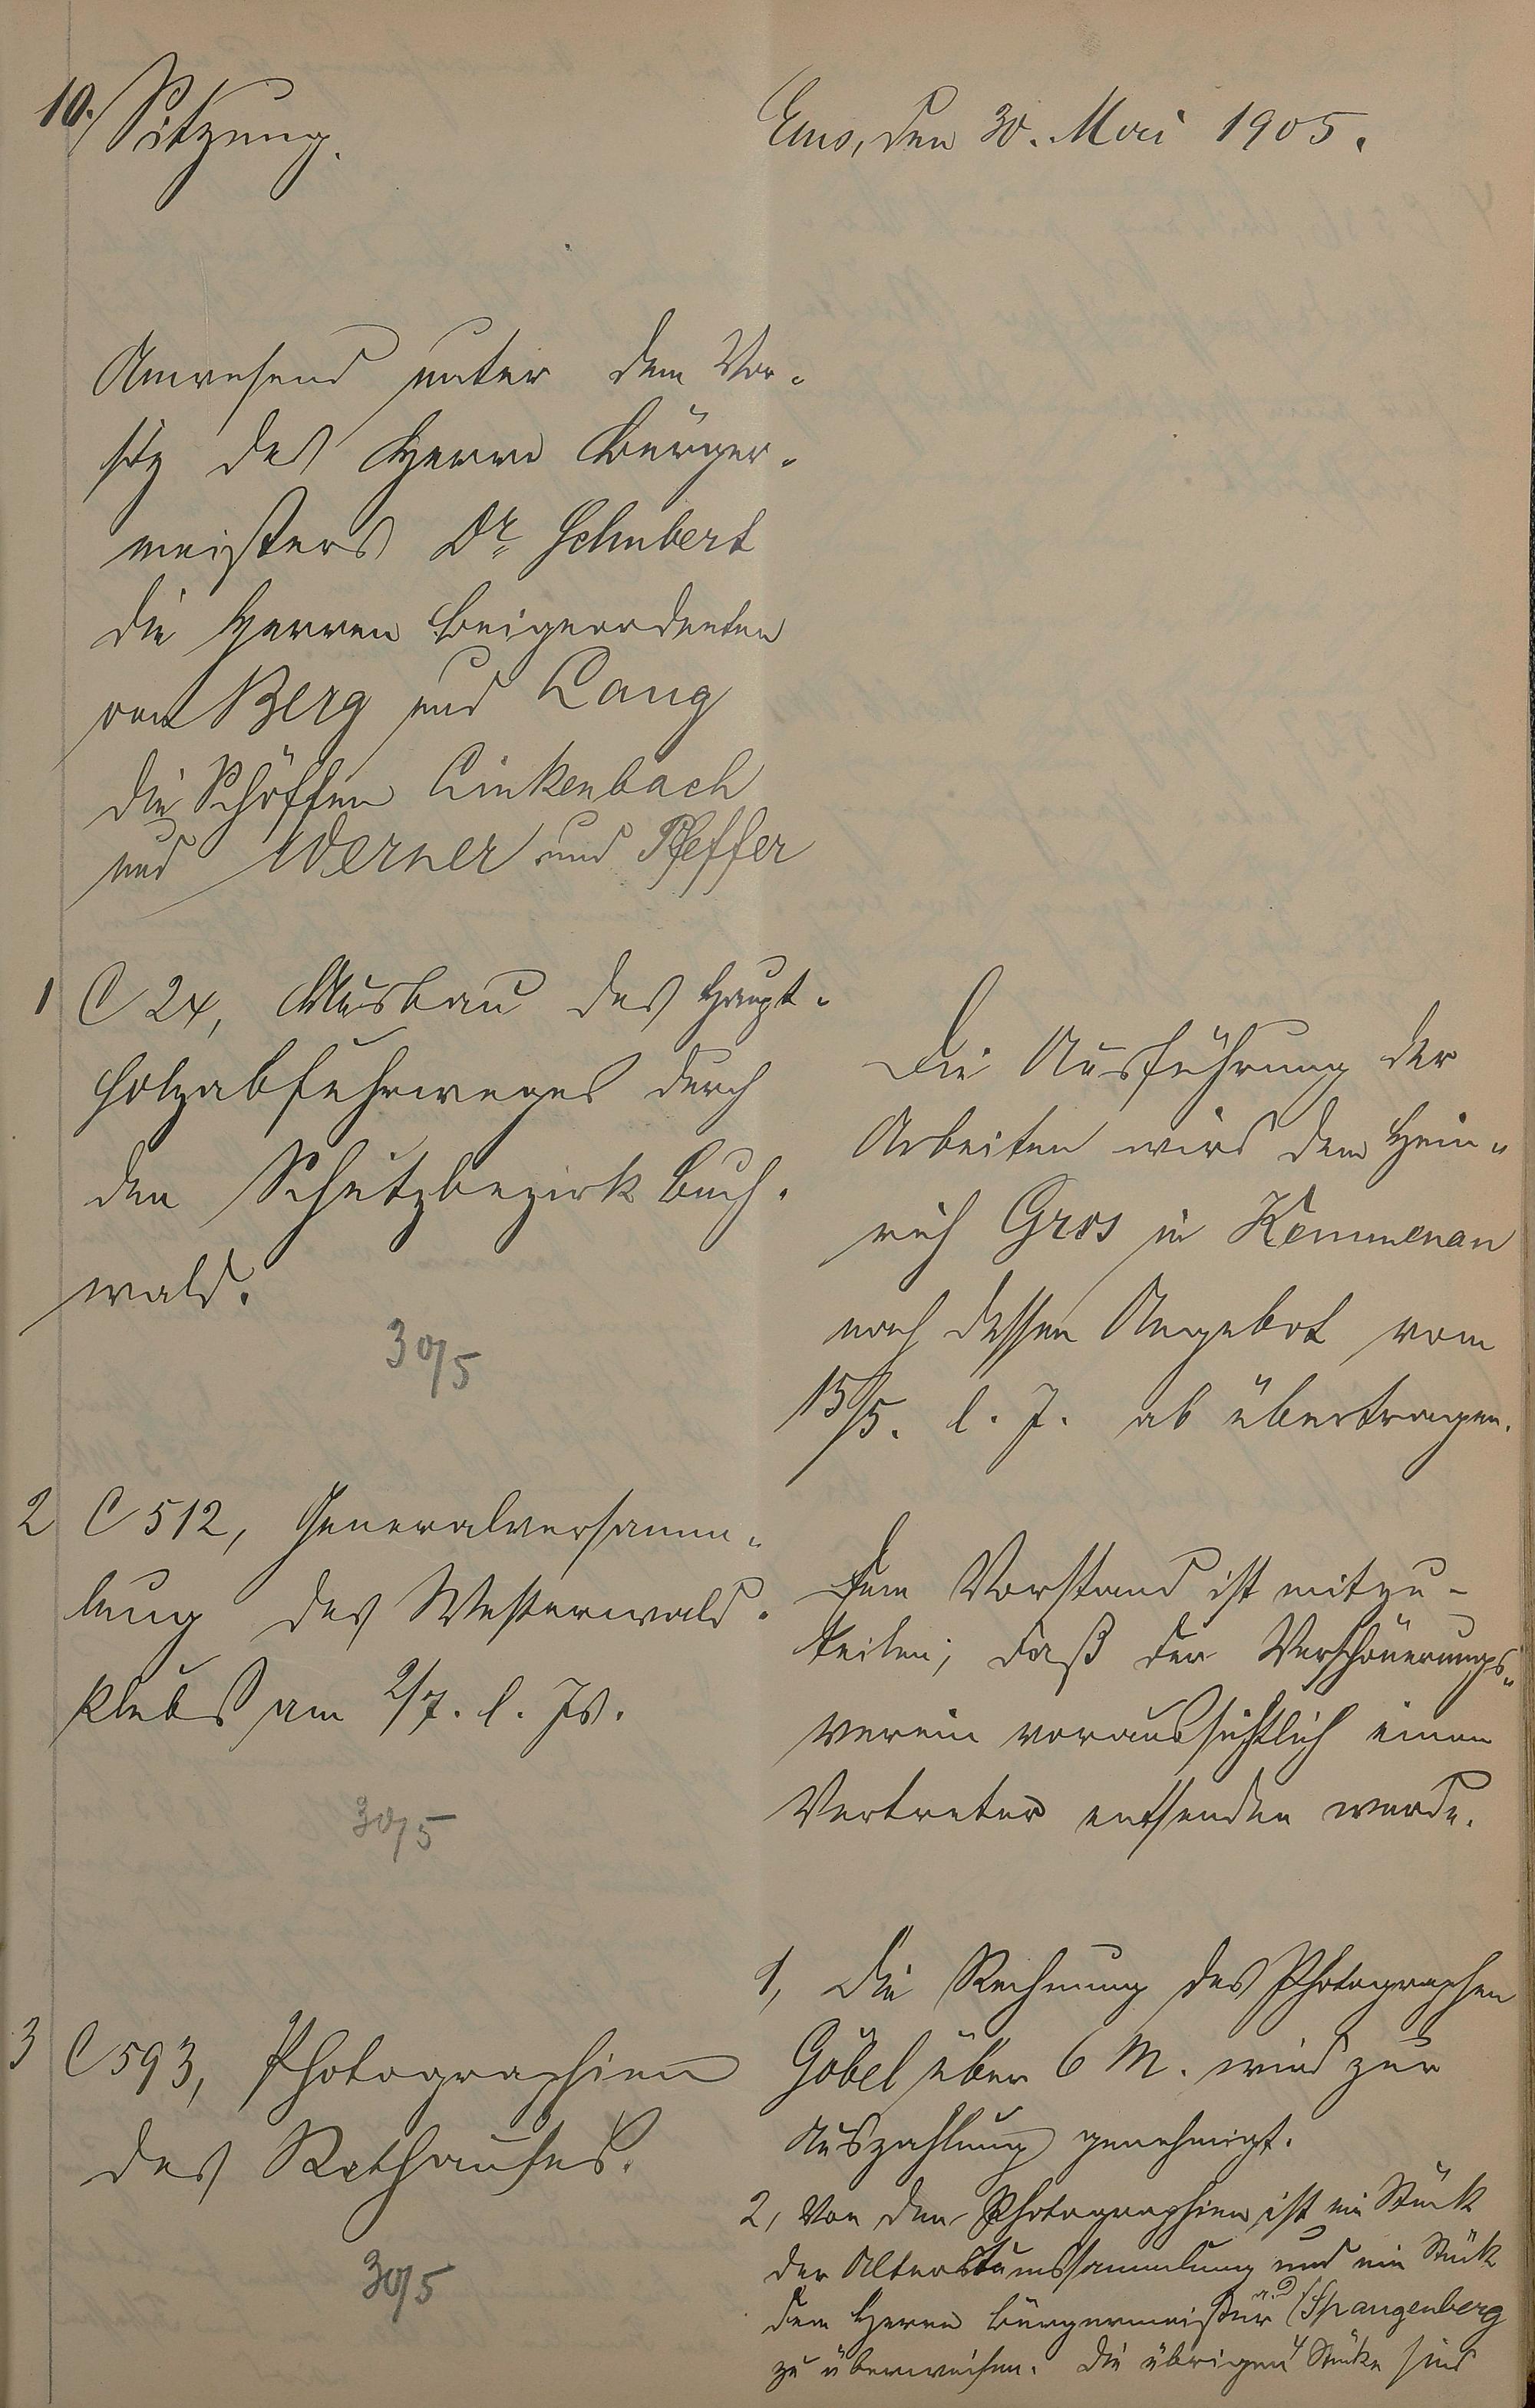 10. Sitzung.
Ems, den 30. Mai 1905.
Anwesend unter dem Vor-
sitz des Herrn Bürger-
meisters Dr. Schubert
die Herren Beigeordneten
von Berg und Lang
die Schöffen Linkenbach
und Werner und Pfeffer
1 C 24, Ausbau des Haupt-
holzabfuhrweges durch
den Schutzbezirk Buch-
wald.
30/5
Die Ausführung der
Arbeiten wird dem Hein-
rich Gros in Kemmenau
nach dessen Angebot vom
15/5. l. J. ab übertragen.
2 C 512, Generalversamm-
lung des Westerwald-
klubs am 2/7. l. Js.
30/5
Dem Vorstand ist mitzu-
teilen, daß der Verschönerungs-
verein voraussichtlich einen
Vertreter entsenden werde.
3 C 593, Photographien
des Rathauses.
30/5
1, Die Rechnung des Photographen
Göbel über 6 M. wird zur
Auszahlung genehmigt.
2, Von den Photographien ist ein Stück
der Altertumssammlung und ein Stück
dem Herrn Bürgermeister a. D. Spangenberg
zu überweisen. Die übrigen 4 Stücke sind